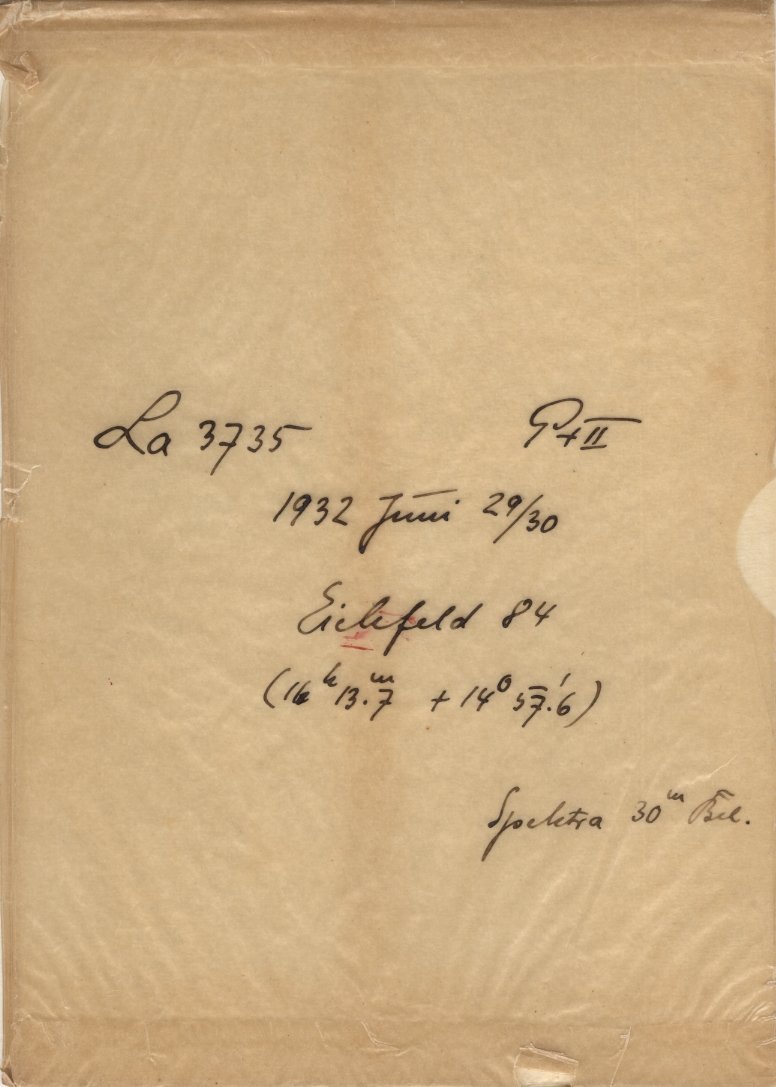 La 3735 P+II
1932 Juni 29/30
Eichfeld 84
(16h 13.m7 + 14° 57.'6)
Spektra 30m Bel.